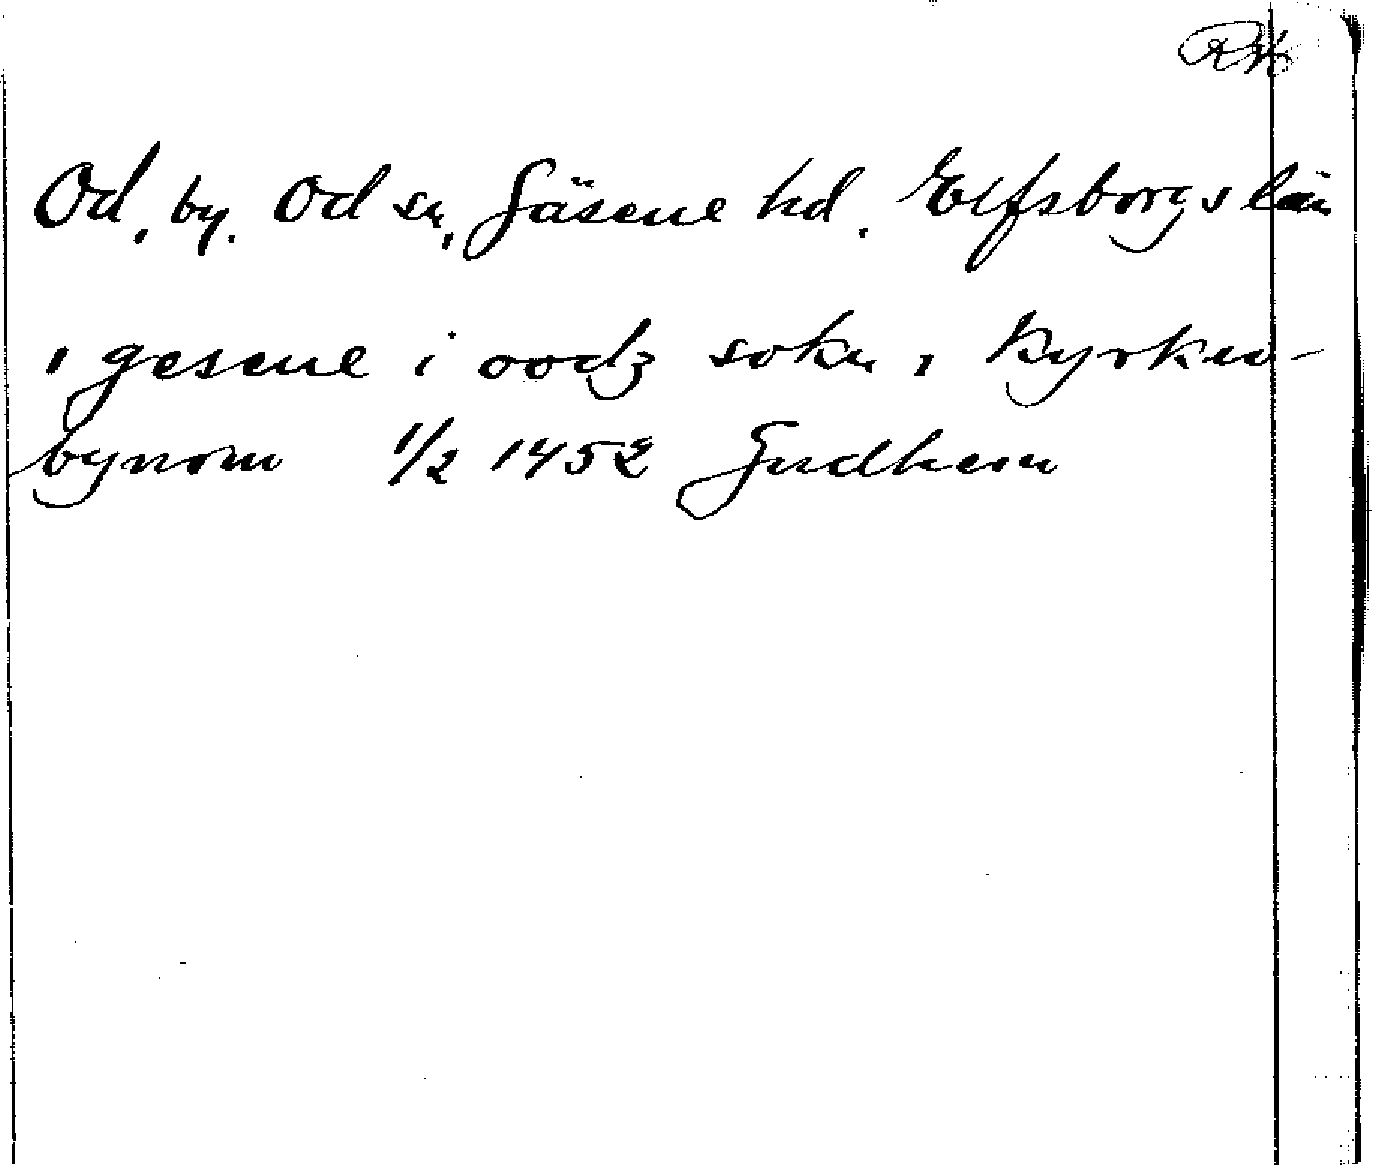 Od, by. Od sn, Gäsene hd. Elfsborgs län
i gesene i oodz sokn, i kyrkio-
bynom 1/2 1452 Gudhem